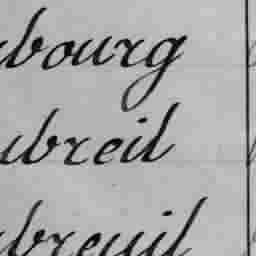 bourg
ubreil
breuil